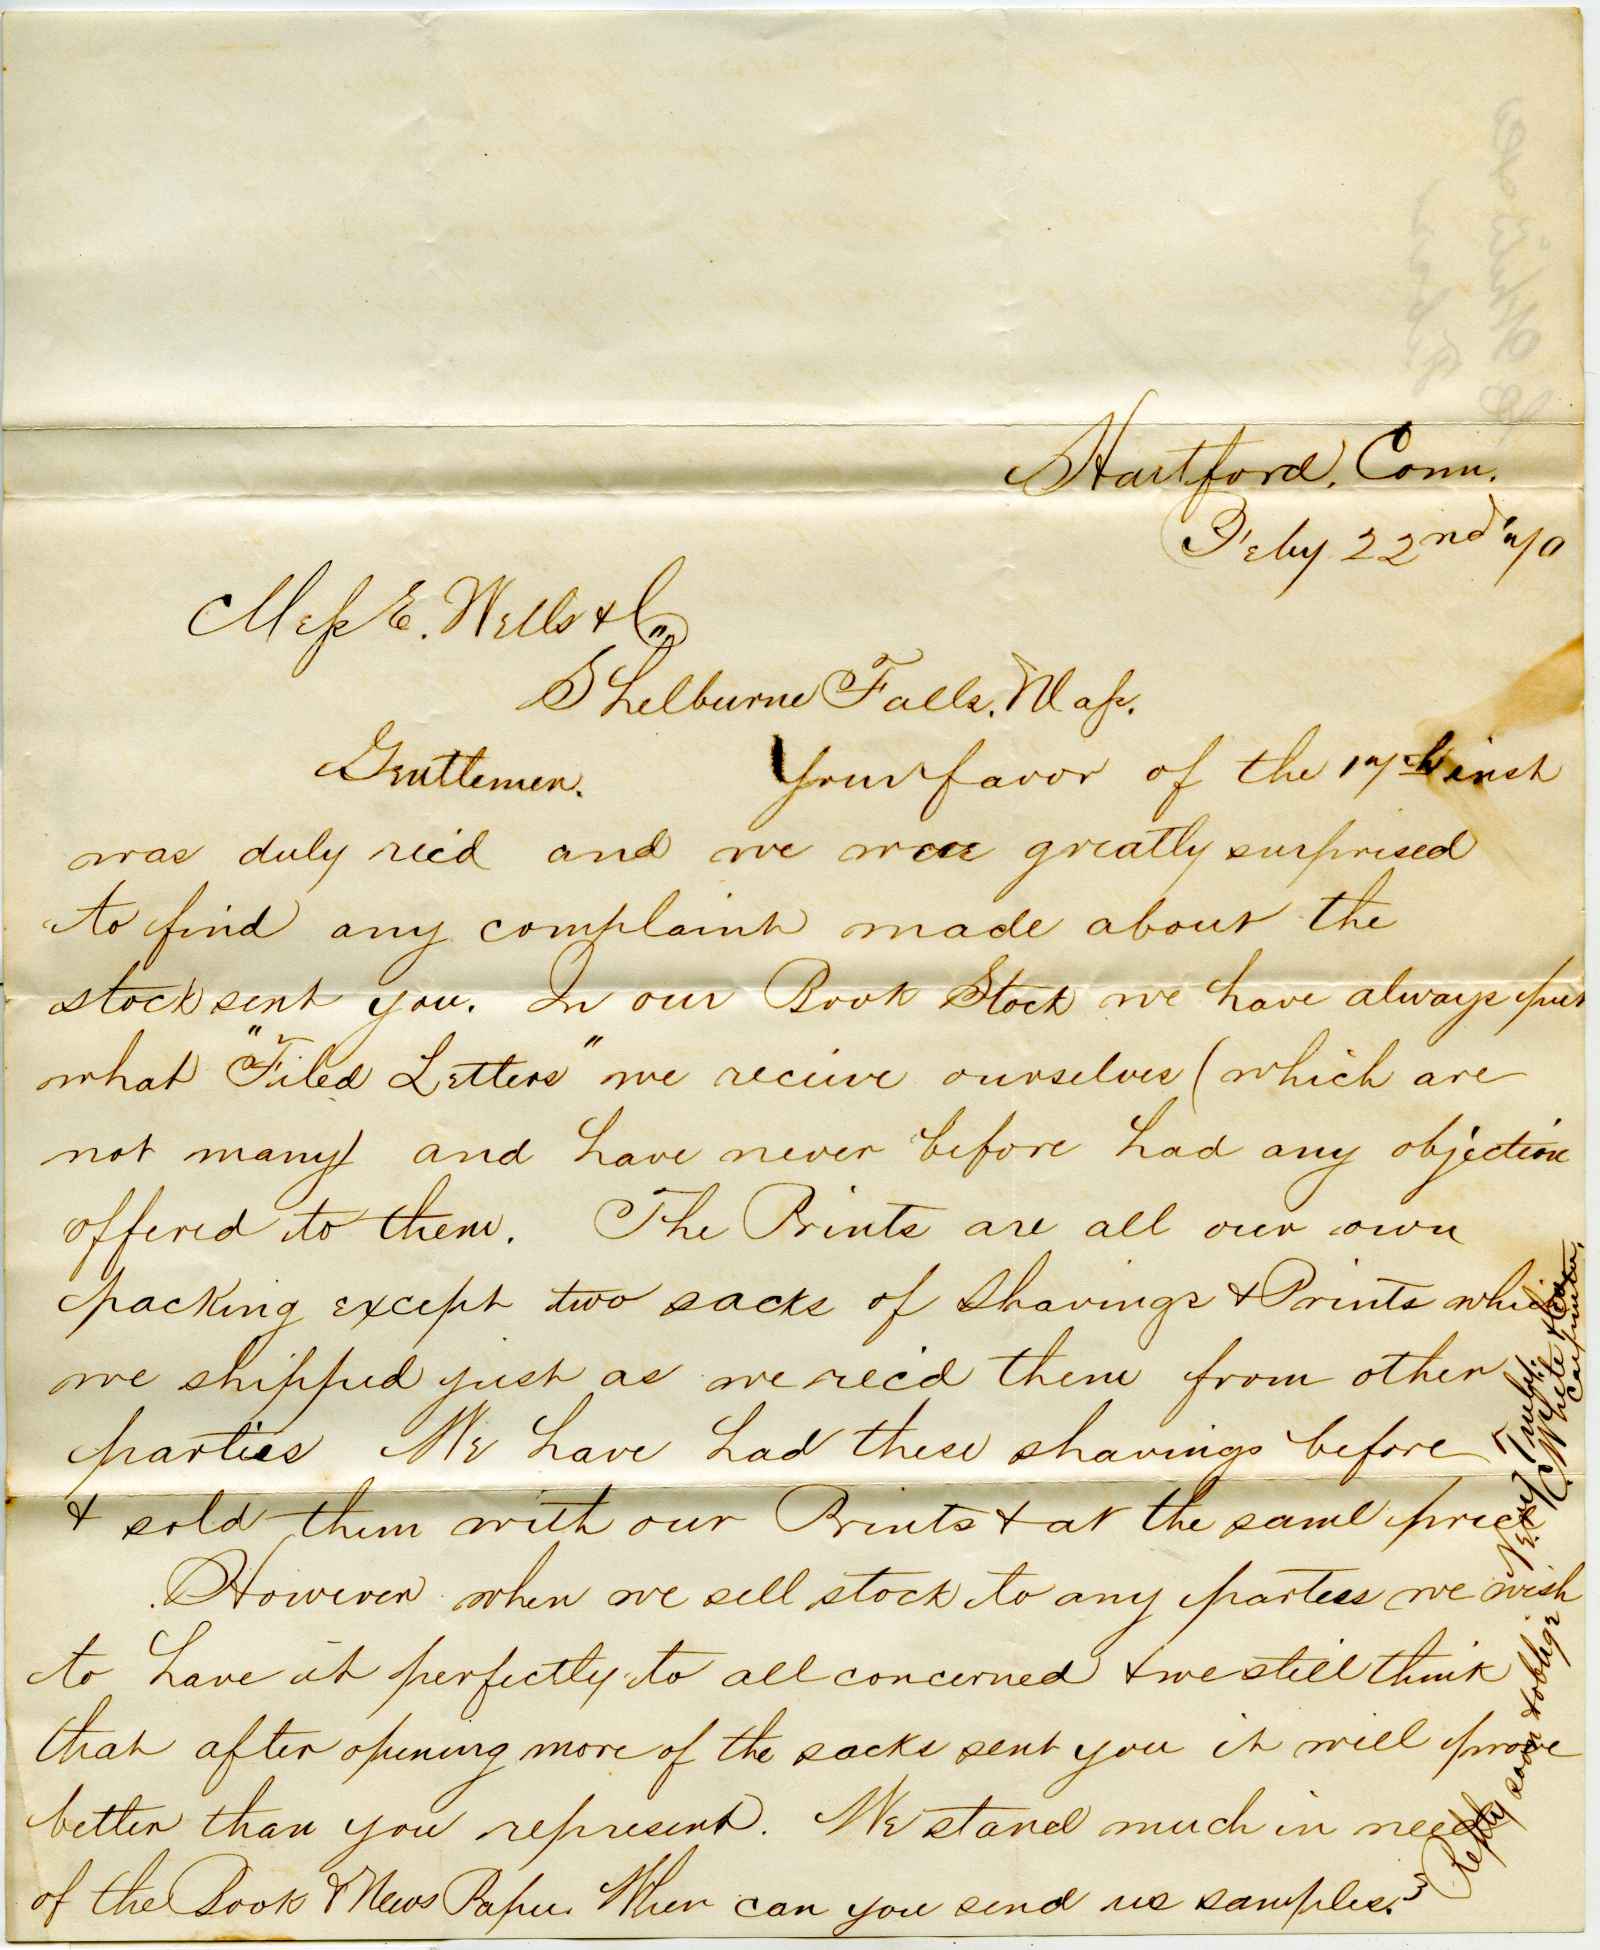 Hartford, Conn.
Feby 22nd '70
Mess E. Wells & Co
Shelburne Falls, Mass.
Gentlemen. Your favor of the 17th inst
was duly rec'd and we were greatly surprised
to find any complaint made about the
stock sent you. In our Book Stock we have always put
what "Filed Letters" we recieve ourselves (which are
not many) and have never before had any objection
offered to them. The Prints are all our own
packing except two sacks of Shavings & Prints which
we shipped just as we rec'd them from other
parties We have had these shavings before
& sold them with our Prints & at the same price
However when we sell stock to any parties we wish
to have it perfectly to all concerned & we still think
that after opening more of the sacks sent you it will prove
better than you represent. We stand much in need
of the Book & News Paper. When can you send us samples.?
Reply soon & oblige
White &
Carpenter.